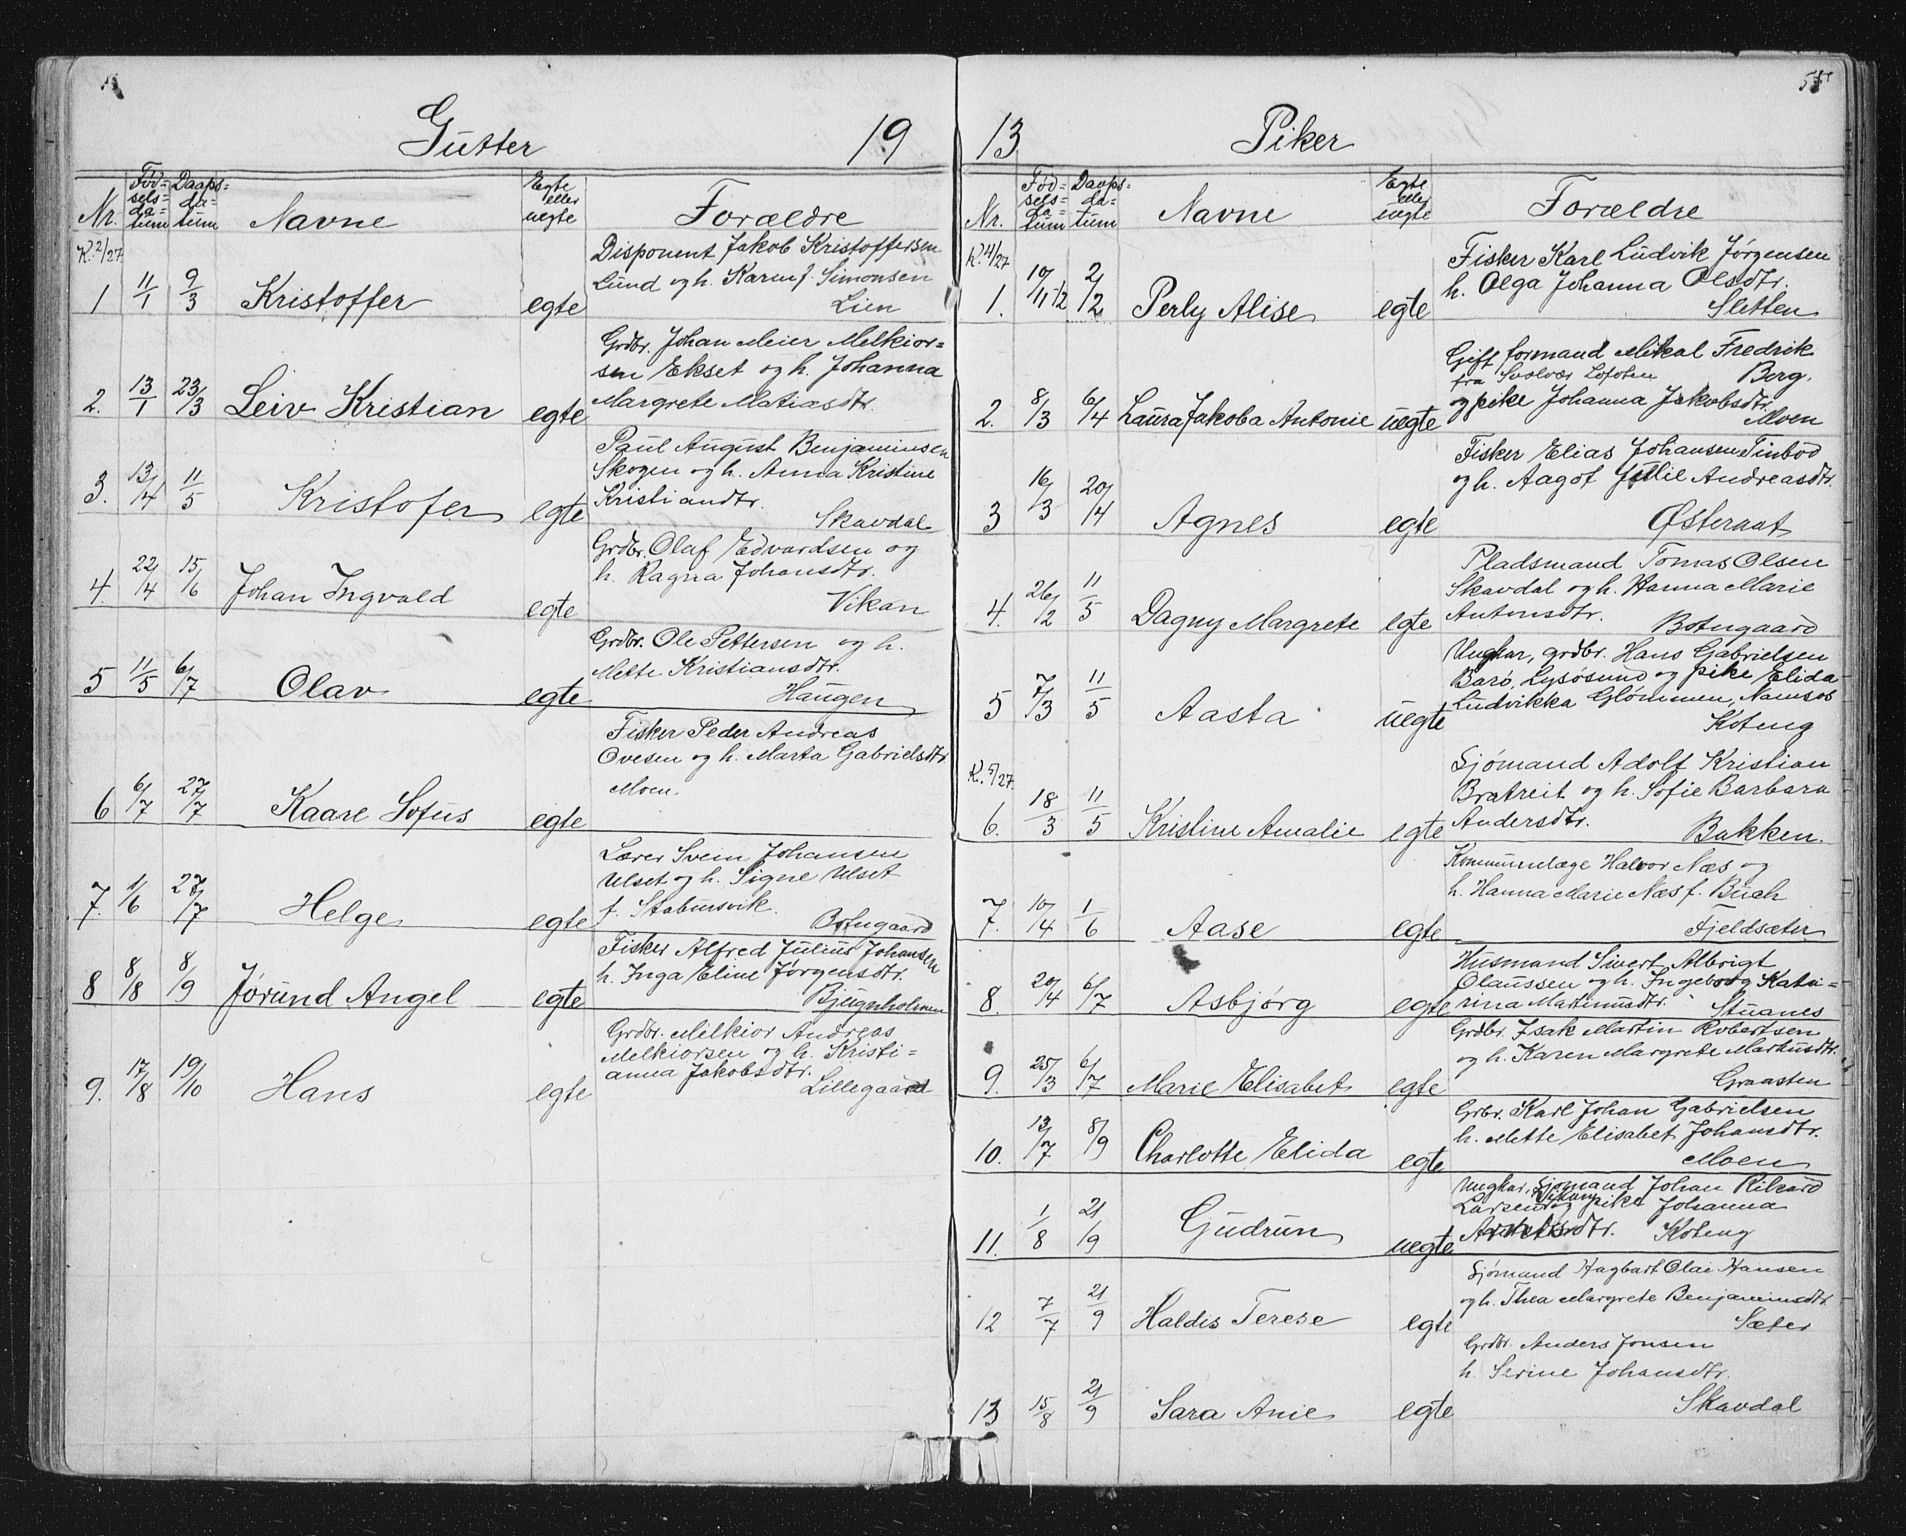 Gutter 19
Nr. Fød=sels=da=tum Daaps=da=tum Navne Egte eller uegte Forældre
K. 2/27
1 11/1 9/3 Kristoffer egte Disponent Jakob Kristoffersen
Lund og h. Karen f. Simonsen
Lien
2. 13/1 23/3 Leiv Kristian egte Grdbr. Johan Meier Melkior=
sen Ekset og h. Johanna
Margrete Matiasdtr.
3. 13/4 11/5 Kristofer egte Paul August Benjaminsen
Skogen og h. Anna Kristine
Kristiandtr.
Skavdal
4. 22/4 15/6 Johan Ingvald egte Grdbr. Olaf Edvardsen og
h. Ragna Johansdtr.
Vikan
5 11/5 6/7 Olav egte Grdbr. Ole Pettersen og h.
Mette Kristiansdtr.
Haugen
6 6/7 27/7 Kaare Sofus egte Fisker Peder Andreas
Ovesen og h. Marta Gabrielsdtr
Moen.
7. 1/6 27/7 Helge egte Lærer Svein Johansen
Ulset og h. Signe Ulset
f. Stabursvik.
Botngaard
8 8/8 8/9 Jørund Angel egte Fisker Alfred Julius Johansen
h. Inga Eline Jørgensdtr.
Bjugnholmen
9. 17/8 19/10 Hans egte Grdbr. Melkior Andreas
Melkiorsen og h. Kristi=
anna Jakobsdtr.
Lillegaard
55
13 Piker
Nr. Fød=sels=da=tum Daaps=da=tum Navne Egte eller uegte Forældre
K. 4/27
1. 19/11-12 2/2 Perly Alise egte Fisker Karl Ludvik Jørgensen
h. Olga Johanna Olsdtr.
Sletten
2. 8/3 6/4 Laura Jakoba Antonie uegte Gift formand Mikal Fredrik
fra Svolvær Lofoten Berg.
og pike Johanna Jakobsdtr.
Moen
3 16/3 20/4 Agnes egte Fisker Elias Johansen Tinbod
og h. Aagot Julie Andreasdtr.
Østeraat
4. 26/2 11/5 Dagny Margrete egte Pladsmand Tomas Olsen
Skavdal og h. Hanna Marie
Antonsdtr.
Botngaard
5 7/3 11/5 Aasta uegte Ungkar, grdbr. Hans Gabrielsen
Barø, Lysøsund og pike Elida
Ludvikka Glømmen, Namsos
Koteng
K. 5/27.
6. 18/3 11/5 Kristine Amalie egte Sjømand Adolf Kristian
Bratreit og h. Sofie Barbara
Andersdtr.
Bakken.
7. 10/4 1/6 Aase egte Kommunelæge Halvor Næs og
h. Hanna Marie Næs f. Buch
Fjeldsæter
8. 20/4 6/7 Asbjørg egte Husmand Sivert Albrigt
Olaussen og h. Ingeborg Kata=
rina Martinusdtr. Stuanes
9. 25/3 6/7 Marie Elisabet egte Grdbr. Isak Martin Robertsen
og h. Karen Margrete Markusdtr.
Graasten
10. 13/7 8/9 Charlotte Elida egte Grbr. Karl Johan Gabrielsen
h. Mette Elisabet Johansdtr.
Moen
11. 1/8 21/9 Gudrun uegte Ungkar, Sjømand Johan Rikard
Larsen og pike Johanna
Koteng
12 7/7 21/9 Haldis Terese egte Sjømand Hagbart Olai Hansen
og h. Thea Margrete Benjaminsdtr.
Sæter
13 15/8 21/9 Sara Anie egte Grdbr. Anders Jonsen
h. Serine Johansdtr.
Skavdal